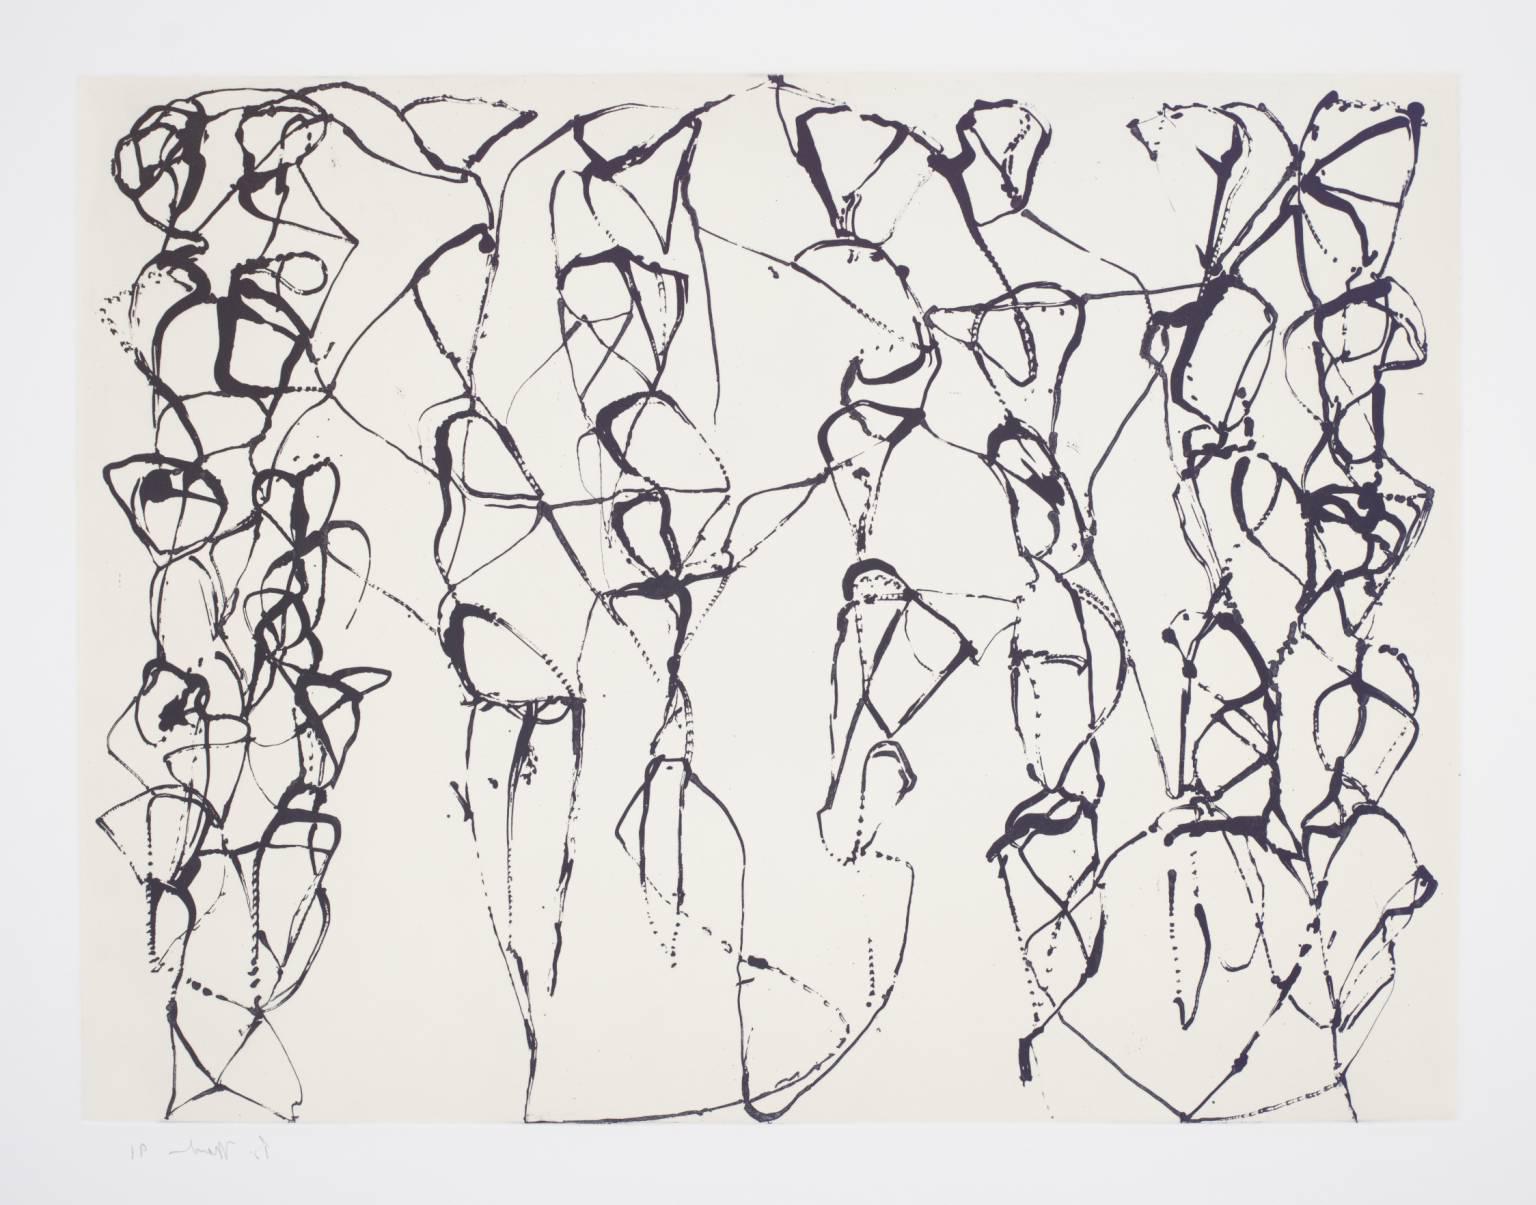 B. Marden 91